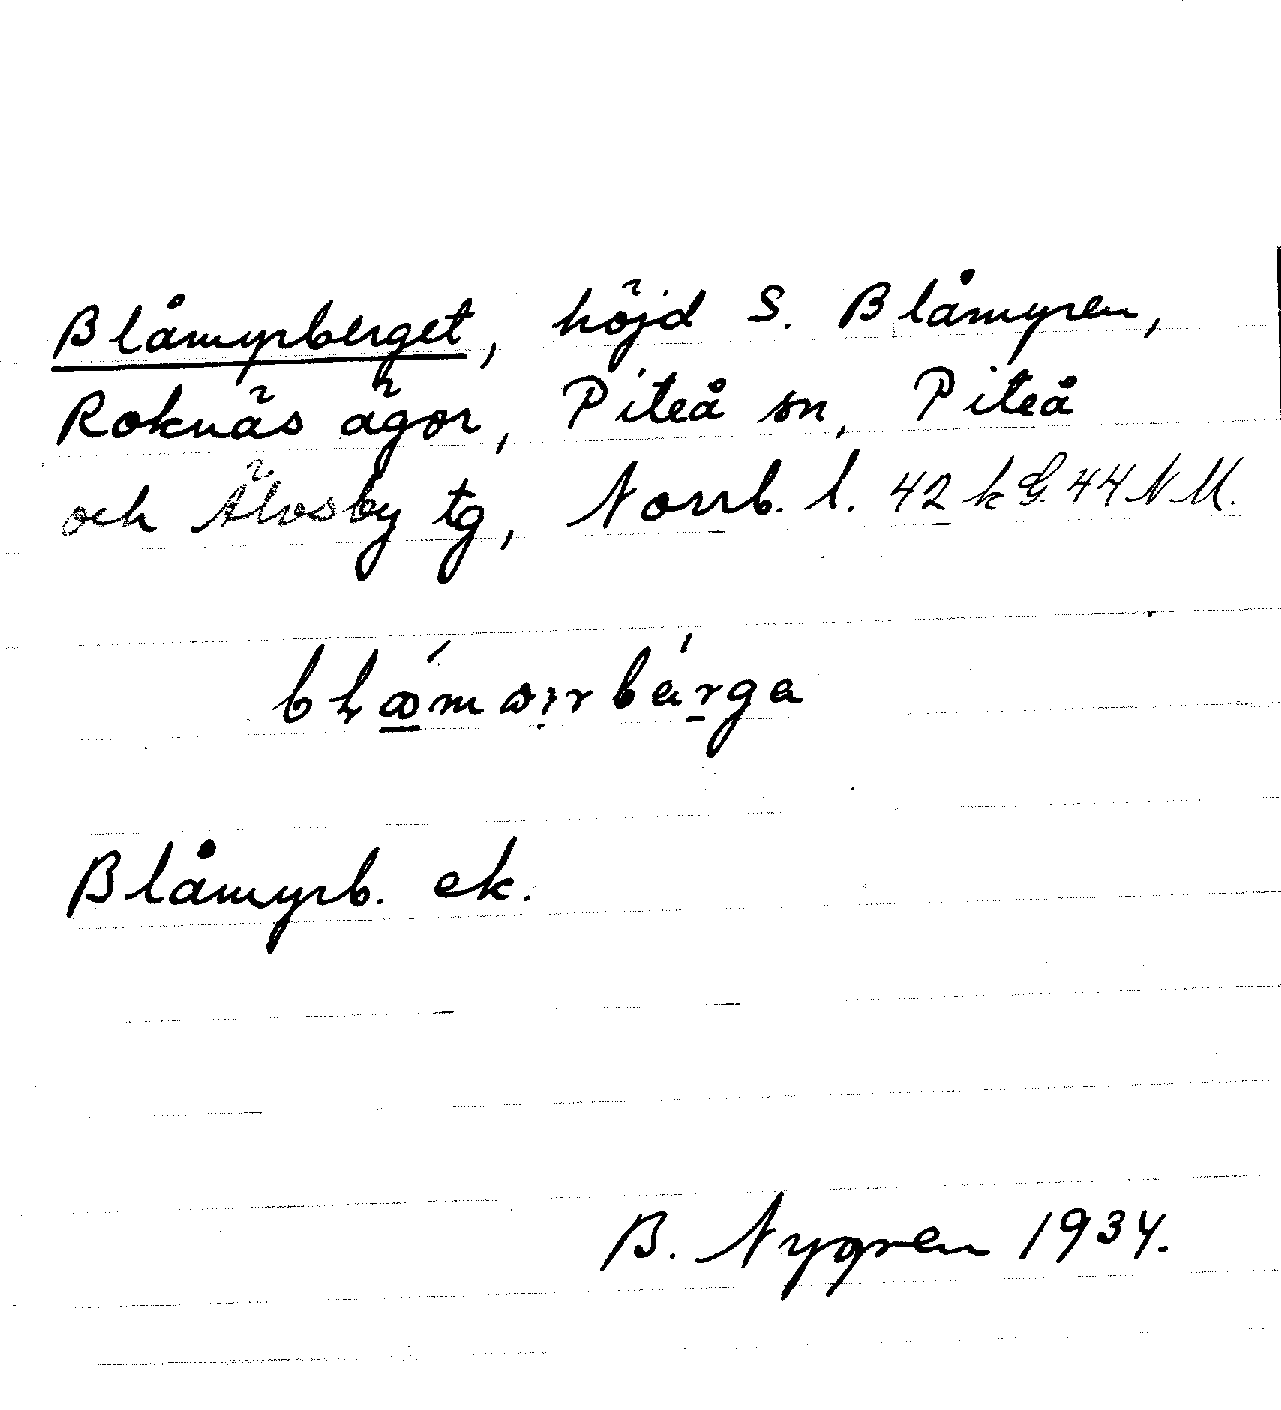 Blåmyrberget, höjd S. Blåmyren,
Roknäs ägor, Piteå sn, Piteå
och Älvsby tg, Norrb. l. 42 k G. 44 N M.
Blåmyrb. ek.
B. Nygren 1934.